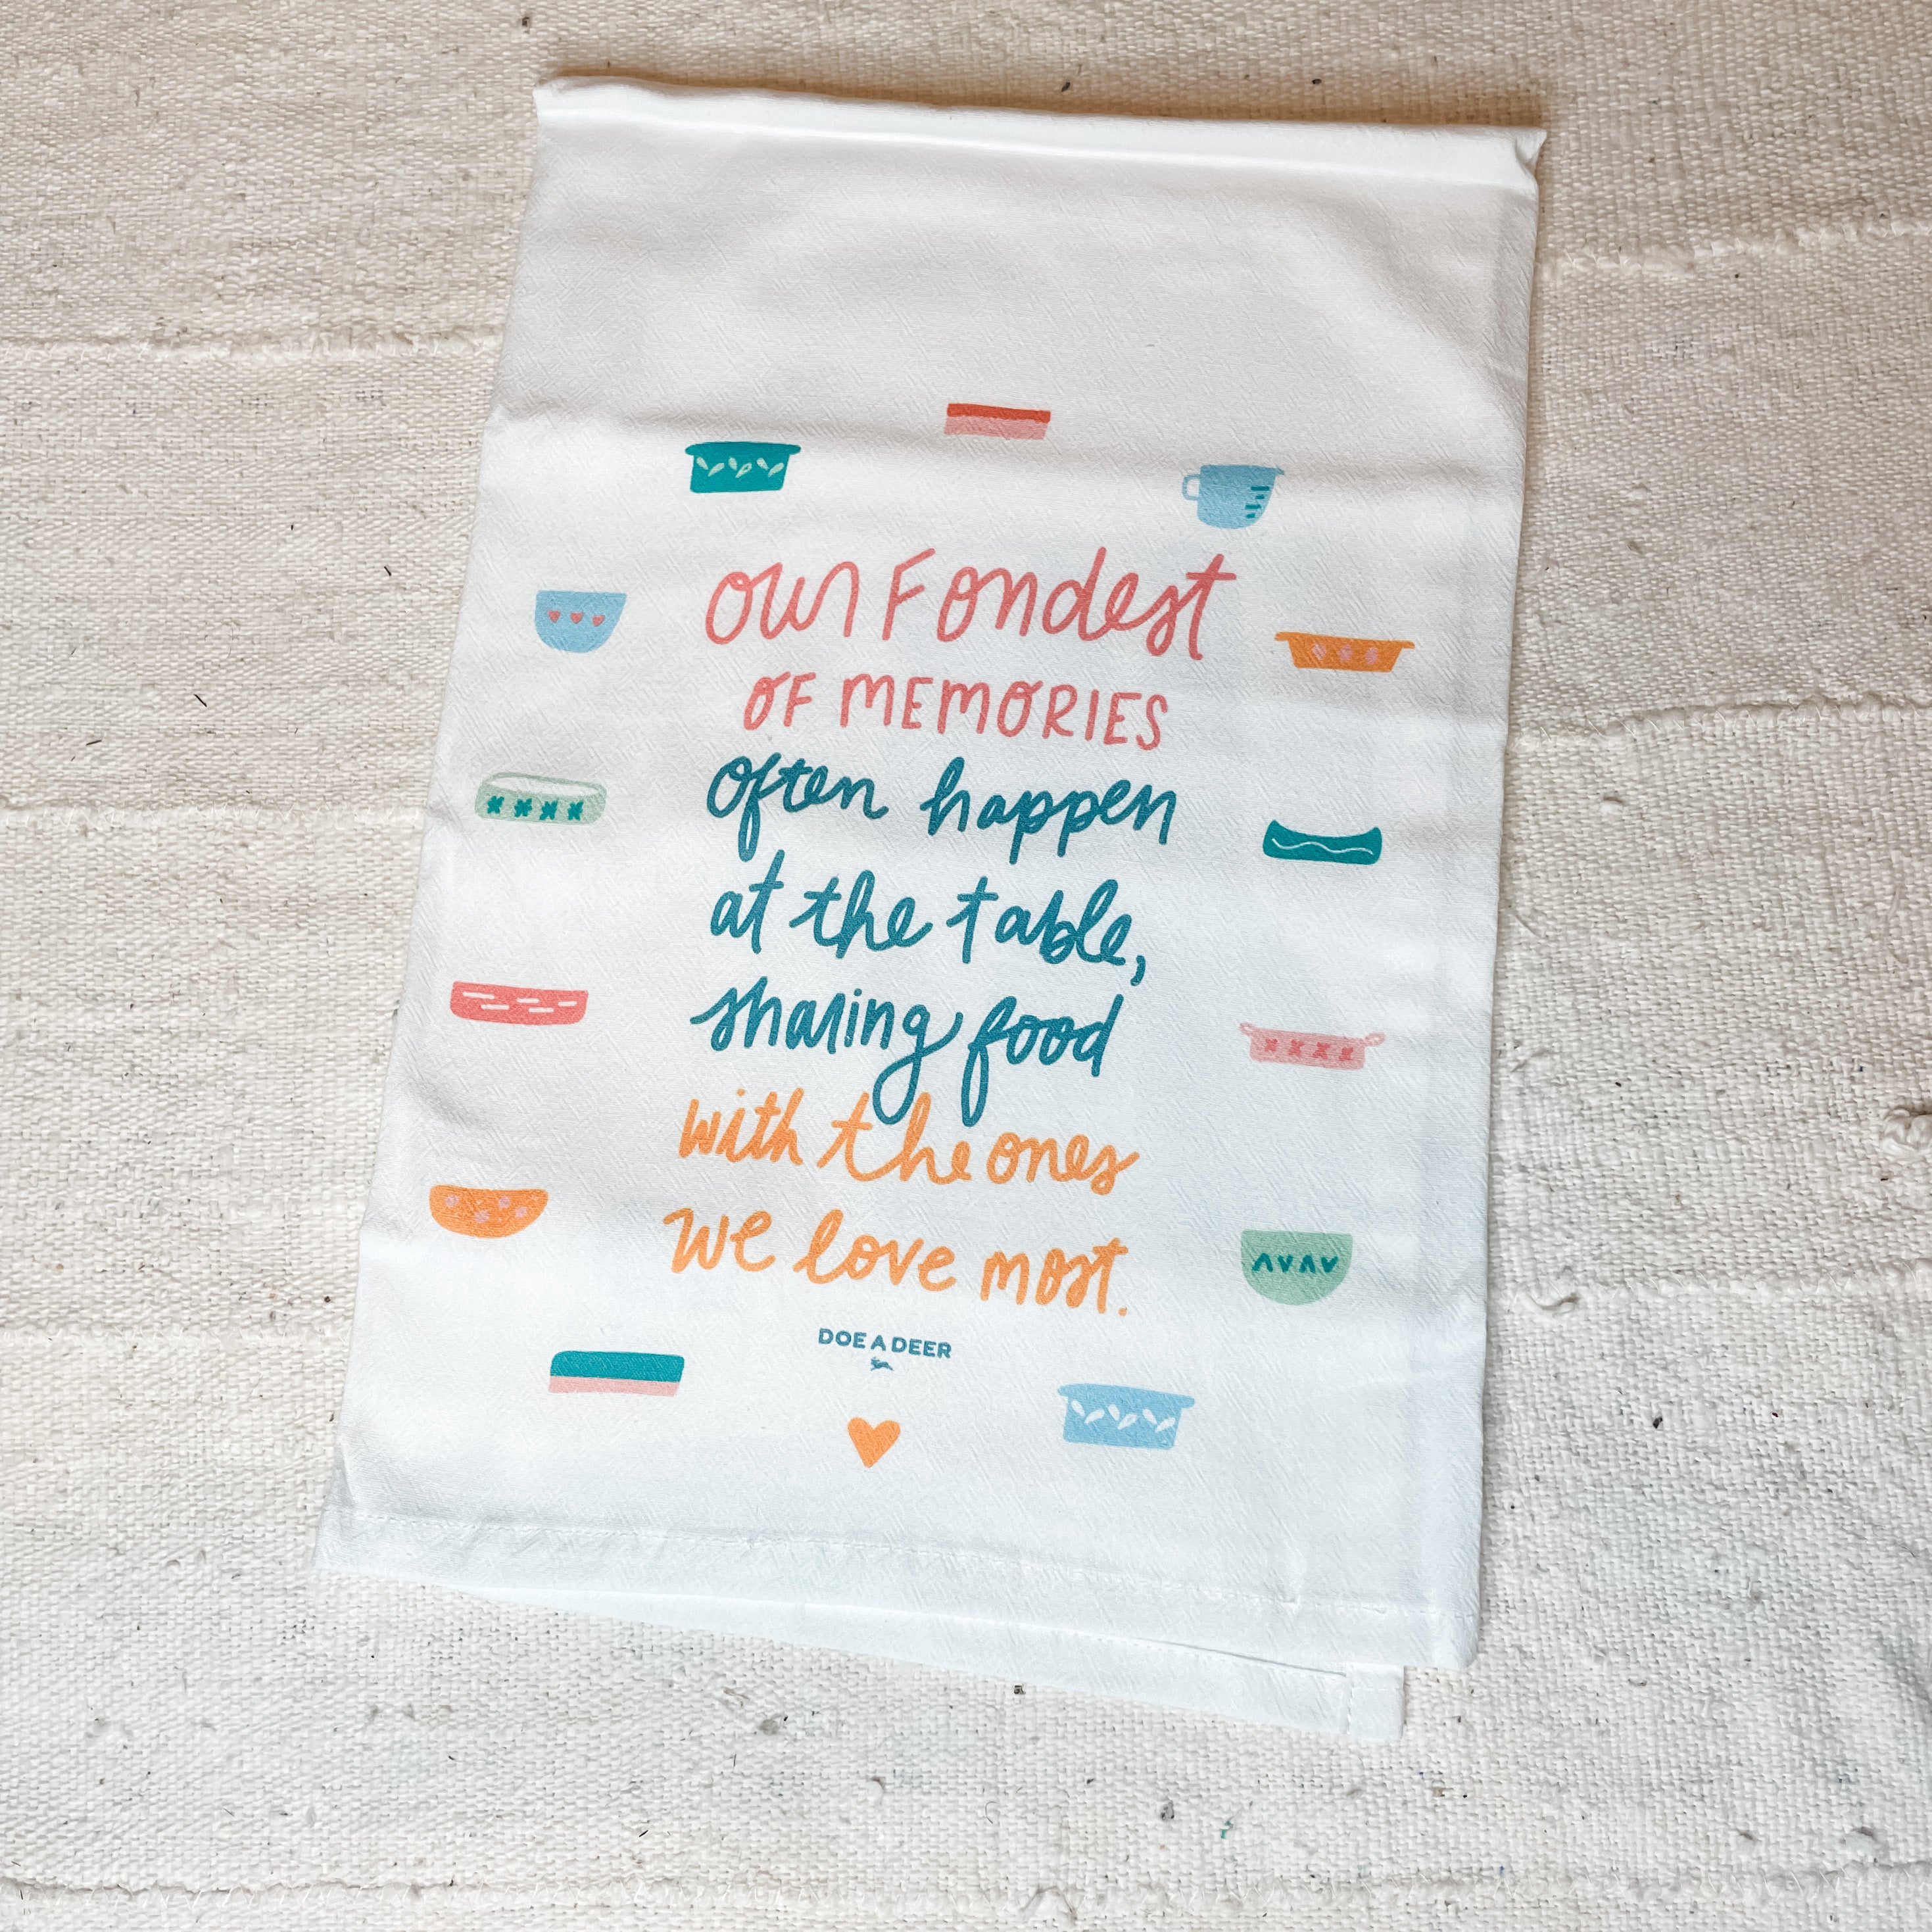 our Fondest
OF MEMORIES
often happen
at the table,
sharing food
with the ones
we love most.
DOE A DEER